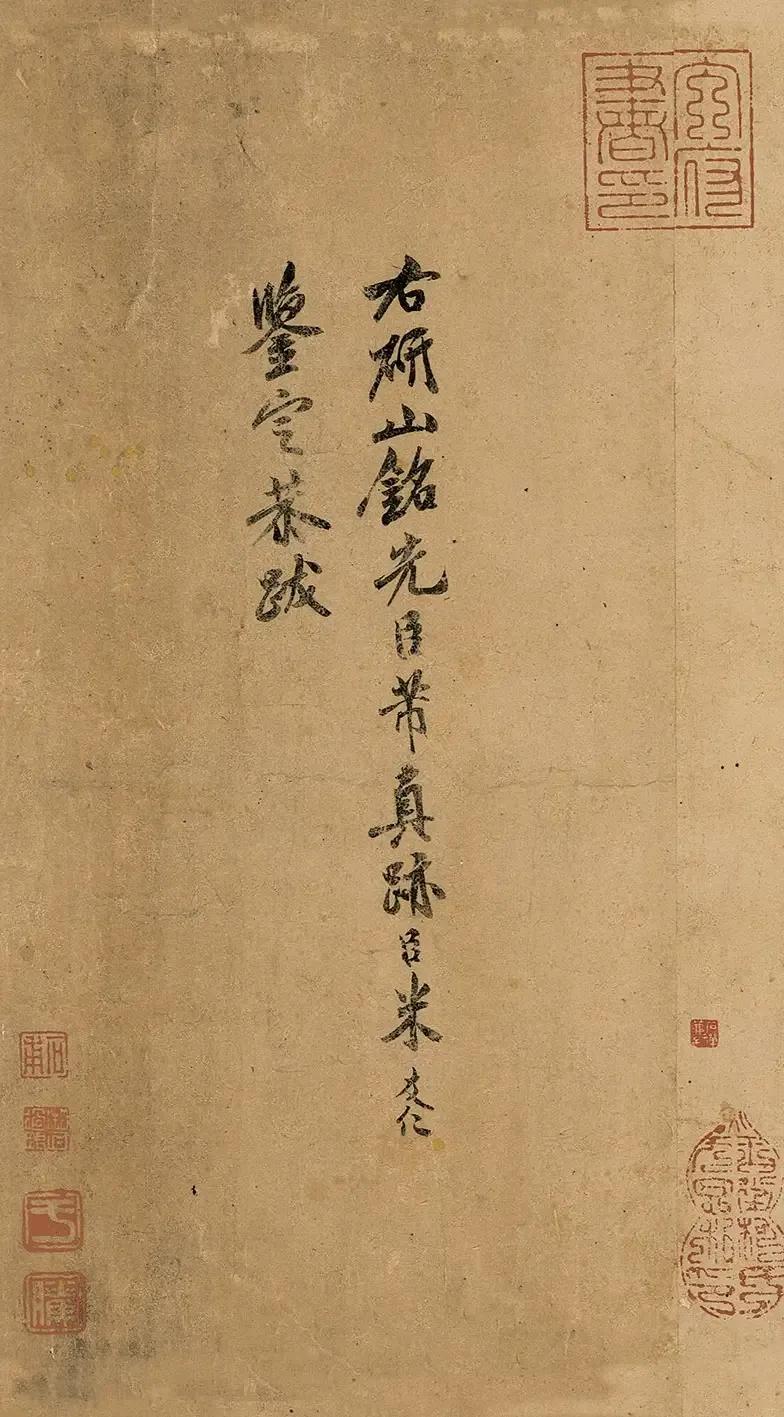 內府書印
右研山銘先臣芾真跡臣米友仁
鑒定恭跋